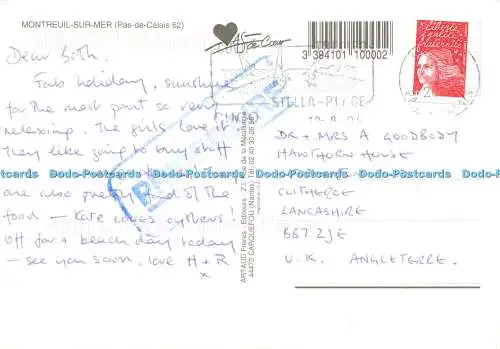 MONTREUIL-SUR-MER (Pas-de-Calais 62)
As de Cœur
3 384101 100002
liberté
égalité
fraternité
STELLA-PLAGE
Dear Both,
Fab holiday, sunshine
for the most part so very
relaxing. The girls love it.
They like going to buy stuff
are also pretty fond of the
food – Kate loves oysters!
Off for a beach day today
– see you soon, love H + R
x
ARTAUD Frères - Éditeurs - Z.I. rue de la Métallurgie
44470 CARQUEFOU (Nantes) Tél 02 40 33 26 56
DR + MRS A GOODBODY
HAWTHORN HOUSE
CLITHEROE
LANCASHIRE
BB7 2JE
U.K. ANGLETERRE.
Dodo-Postcards Dodo-Postcards Dodo-Postcards Dodo-Postcards Dodo-Postcards Dodo-Postcards